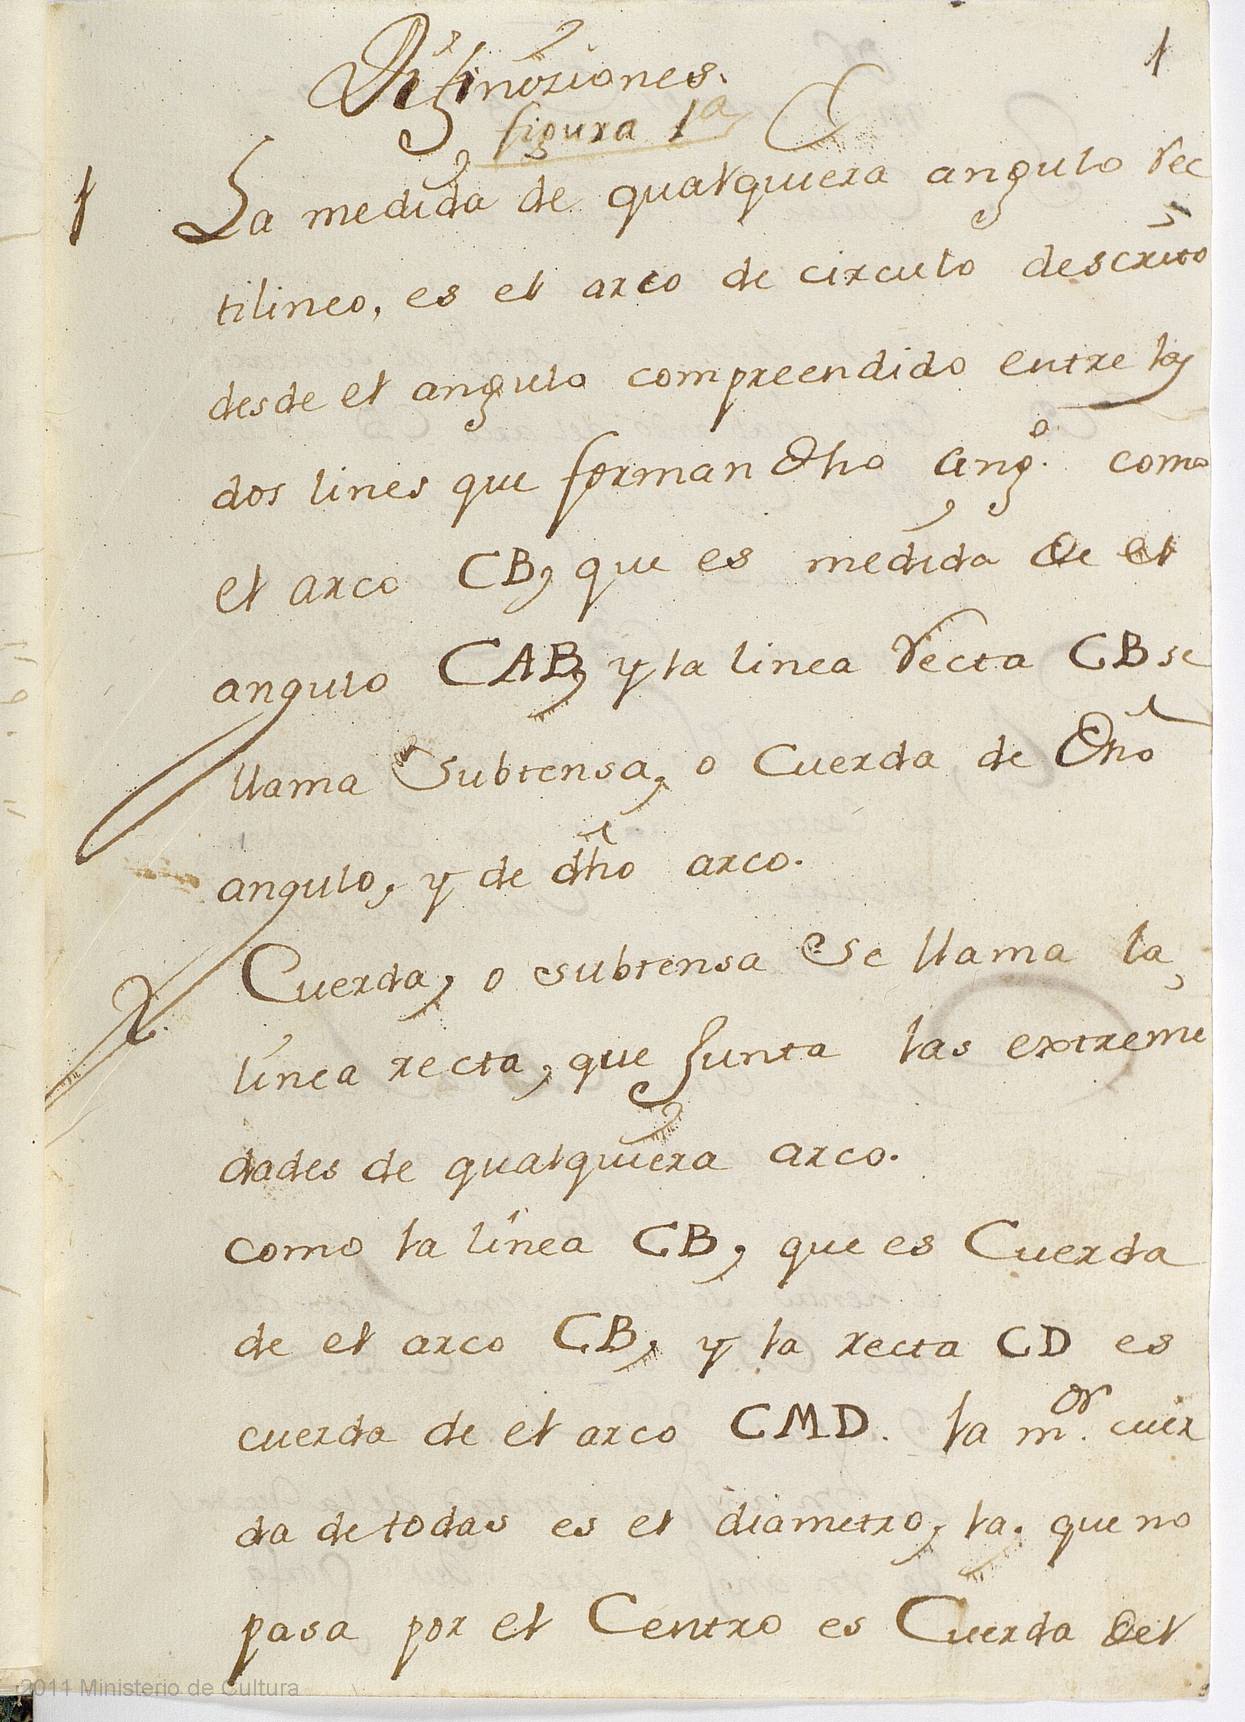 1
Difiniziones.
figura 1ª
1 La medida de qualquiera angulo rec
tilineo, es el arco de circulo descrito
desde el angulo compreendido entre las
dos lines que forman dho angº. como
el arco CB, que es medida de el
angulo CAB, y la linea recta CB se
llama Subtensa, o Cuerda de dho
angulo, y de dho arco.
2. Cuerda, o subtensa se llama la
linea recta, que junta las extremi
dades de qualquiera arco.
como la linea CB, que es Cuerda
de el arco CB, y la recta CD es
cuerda de el arco CMD. la mor. cuer
da de todas es el diametro, la que no
pasa por el Centro es Cuerda del
2011 Ministerio de Cultura